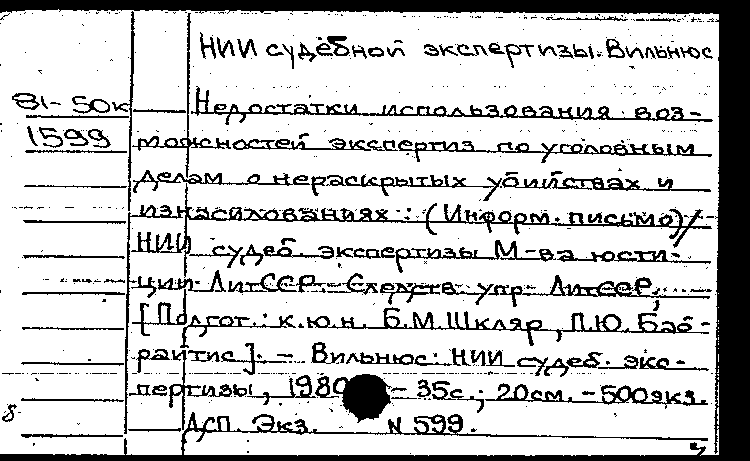 НИИ судебной экспертизы. Вильнюс
81-50к Недостатки использования воз-
1599 можностей экспертиз по уголовным
делам о нераскрытых убийствах и
изнасилованиях: (Информ. письмо)/
НИИ судеб. экспертизы М-ва юсти-
ции ЛитССР. - Следств. упр. ЛитССР;
[Подгот.: к.ю.н. Б.М. Шкляр, П.Ю. Баб-
райтис]. - Вильнюс: НИИ судеб. экс-
пертизы, 1980 - 35с.; 20см. - 500экз.
8 ДСП. Экз. N 599.